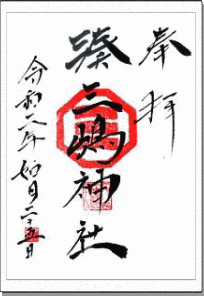 奉拝
湊三嶋神社
令和二年如月二十五日